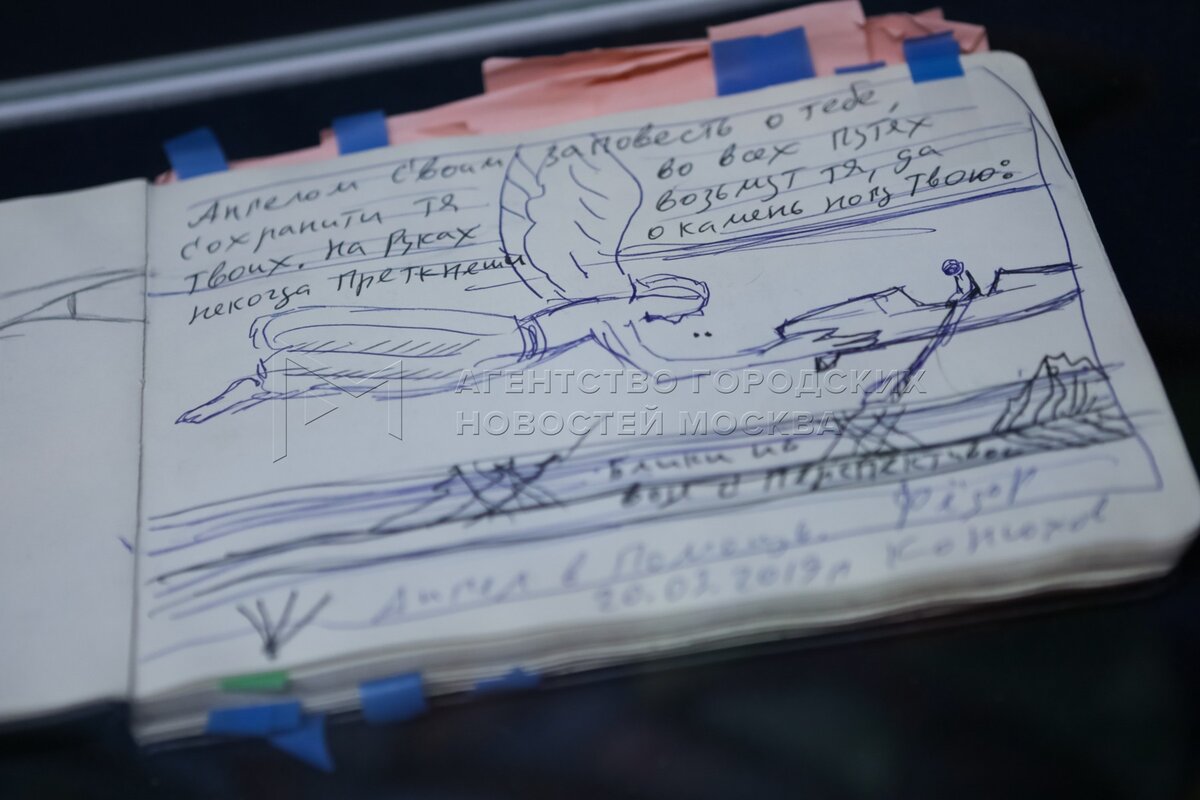 Ангелом своим заповесть о тебе,
сохранити тя во всех путях
твоих. на руках возьмут тя, да
некогда преткнеши о камень ногу твою:
АГЕНТСТВО ГОРОДСКИХ
НОВОСТЕЙ МОСКВА
Блики на
воде с перспективой
Ангел в
Фёдор
20.03.2019г Конюхов